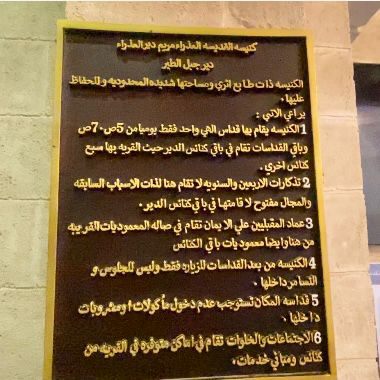 كنيسه القديسه العذراء مريم دير العذراء
دير جبل الطير
الكنيسه ذات طابع اثري ومساحتها شديده المحدوديه وللحفاظ
عليها .
يراعي الاتي :
1 الكنيسه يقام بها قداس الهي واحد فقط يوميا من 5ص .7ص
وباقي القداسات تقام في باقي كنائس الدير حيث القريه بها سبع
كنائس اخري .
2 تذكارات الاربعين والسنويه لا تقام هنا لذات الاسباب السابقه
والمجال مفتوح لا قامتها في باقي كنائس الدير .
3 عماد المقبليين علي الايمان تقام في صاله المعموديات القريبه
من هنا وايضا معموديات باقي الكنائس
4 الكنيسه من بعد القداسات للزياره فقط وليس للجلوس و
التسامر داخلها .
5 قداسه المكان تستوجب عدم دخول مأكولات او مشروبات
داخلها .
6 الاجتماعات والخلوات تقام في اماكن متوفره في القريه من
كنائس ومباني خدمات .